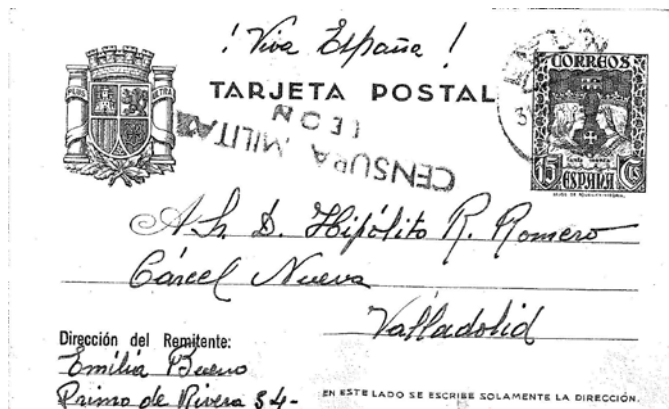 ¡Viva España!
PLUS ULTRA
TARJETA POSTAL
CORREOS
CENSURA MILITAR
LEON
15 Cs
ESPAÑA
A Sr. D. Hipólito R. Romero
Cárcel Nueva
Valladolid
Dirección del Remitente:
Emilia Bueno
Primo de Rivera 34-
EN ESTE LADO SE ESCRIBE SOLAMENTE LA DIRECCIÓN.